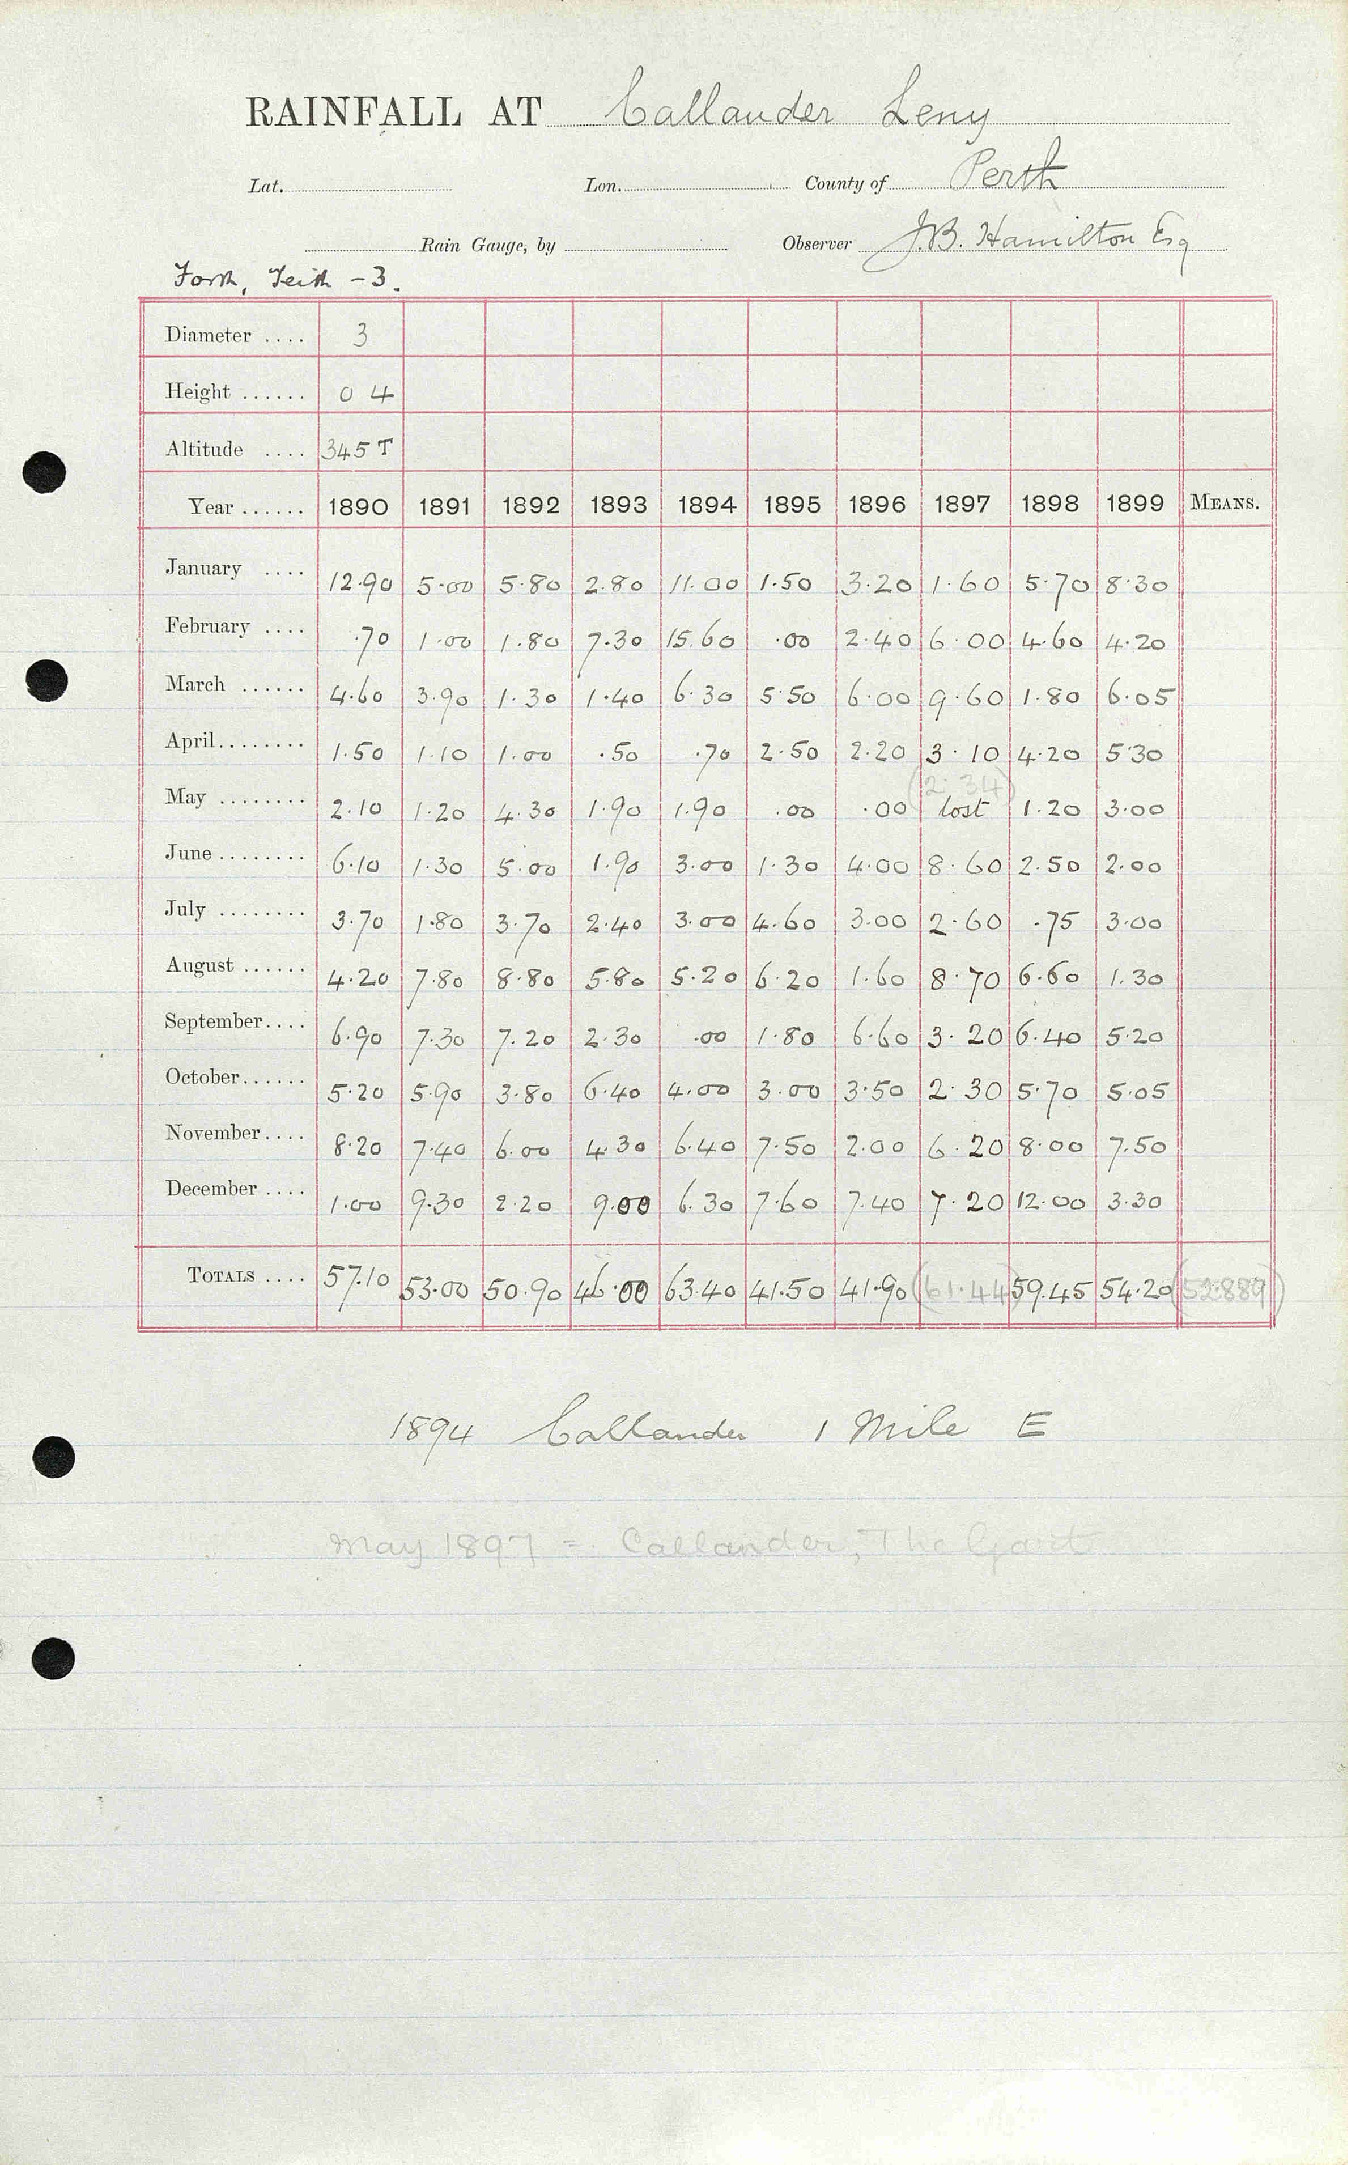 RAINFALL AT Callander Leny
Lat. Lon. County of Perth
Rain Gauge, by Observer J.B. Hamilton Esq
Forth, Teith - 3.
Diameter .... 3
Height ...... 0 4
Altitude .... 345 T
Year ...... 1890 1891 1892 1893 1894 1895 1896 1897 1898 1899 MEANS.
January .... 12.90 5.00 5.80 2.80 11.00 1.50 3.20 1.60 5.70 8.30
February .... .70 1.00 1.80 7.30 15.60 .00 2.40 6.00 4.60 4.20
March ...... 4.60 3.90 1.30 1.40 6.30 5.50 6.00 9.60 1.80 6.05
April........ 1.50 1.10 1.00 .50 .70 2.50 2.20 3.10 4.20 5.30
(2.34)
May ........ 2.10 1.20 4.30 1.90 1.90 .00 .00 lost 1.20 3.00
June ........ 6.10 1.30 5.00 1.90 3.00 1.30 4.00 8.60 2.50 2.00
July ........ 3.70 1.80 3.70 2.40 3.00 4.60 3.00 2.60 .75 3.00
August ...... 4.20 7.80 8.80 5.80 5.20 6.20 1.60 8.70 6.60 1.30
September.... 6.90 7.30 7.20 2.30 .00 1.80 6.60 3.20 6.40 5.20
October...... 5.20 5.90 3.80 6.40 4.00 3.00 3.50 2.30 5.70 5.05
November.... 8.20 7.40 6.00 4.30 6.40 7.50 2.00 6.20 8.00 7.50
December .... 1.00 9.30 2.20 9.00 6.30 7.60 7.40 7.20 12.00 3.30
TOTALS .... 57.10 53.00 50.90 46.00 63.40 41.50 41.90 (61.44) 59.45 54.20 (52.889)
1894 Callander 1 Mile E
May 1897 = Callander, The Gart